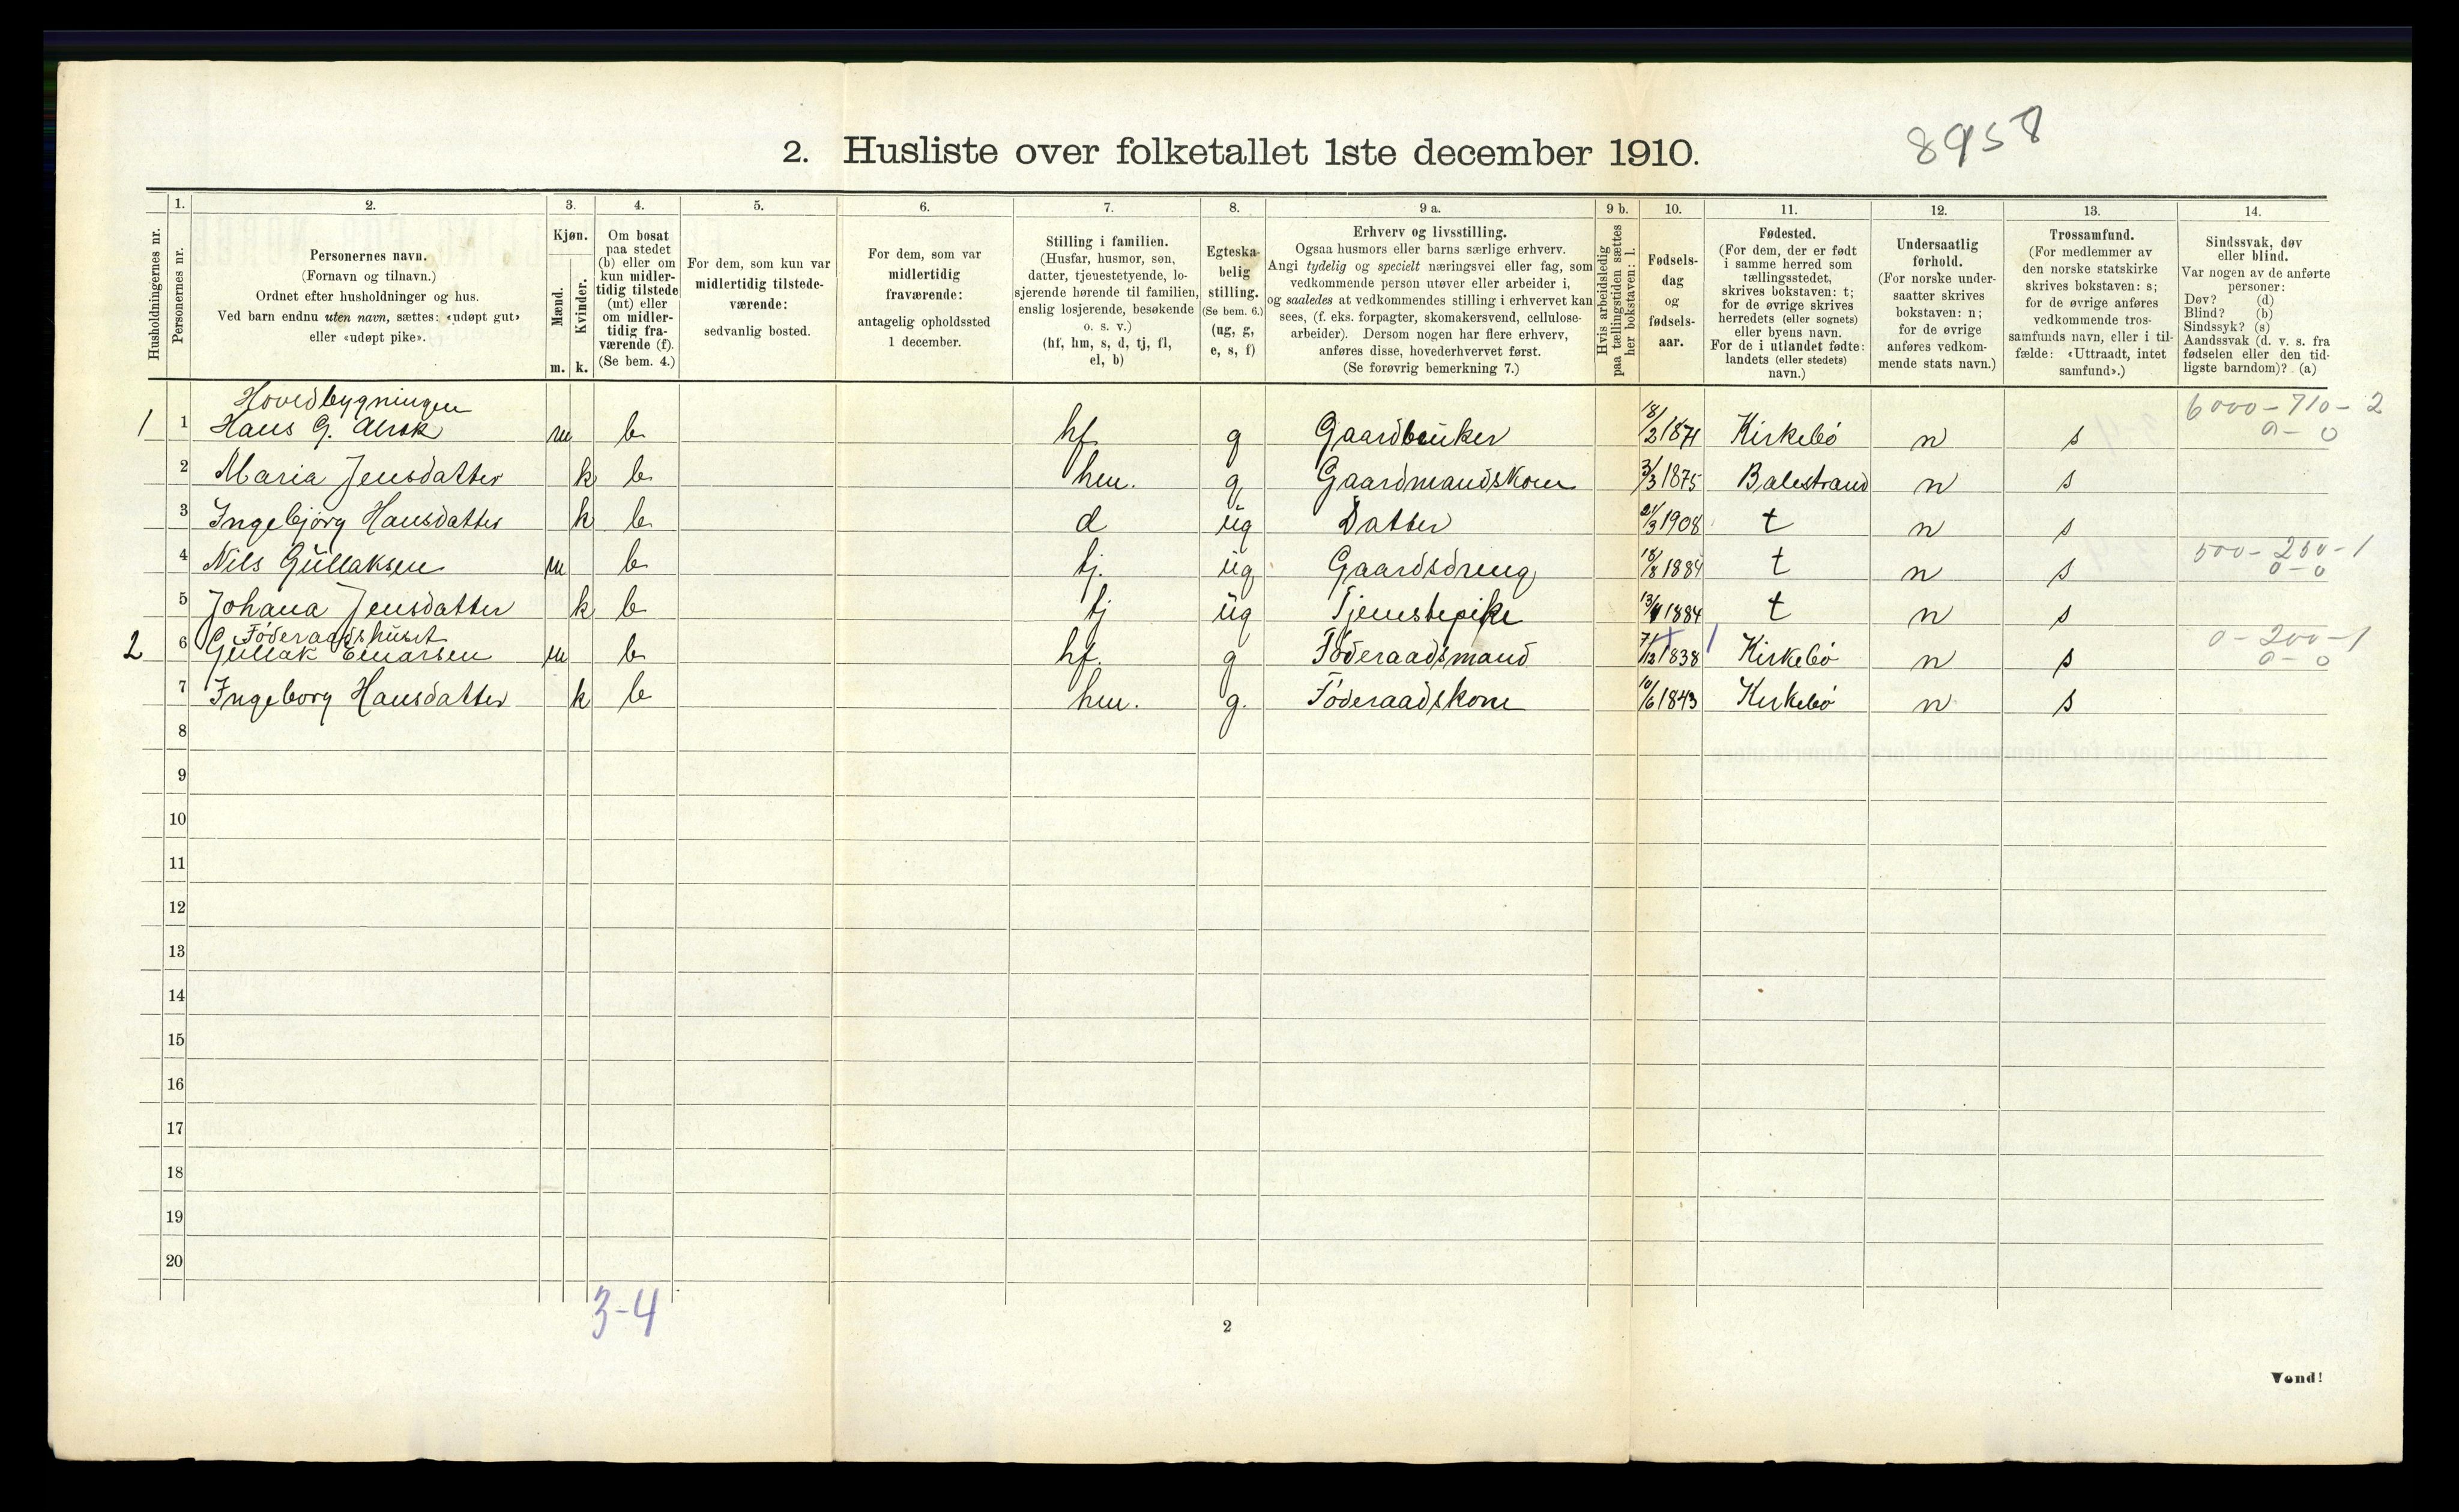 8958
2. Husliste over folketallet 1ste december 1910.
1. 2. 3. 4. 5. 6. 7. 8. 9 a. 9 b. 10. 11. 12. 13. 14.
Husholdningernes nr.
Personernes nr.
Personernes navn.
(Fornavn og tilnavn.)
Ordnet efter husholdninger og hus.
Ved barn endnu uten navn, sættes: «udøpt gut»
eller «udøpt pike».
Kjøn.
Mænd.
Kvinder.
m. k.
Om bosat
paa stedet
(b) eller om
kun midler-
tidig tilstede
(mt) eller
om midler-
tidig fra-
værende (f).
(Se bem. 4.)
For dem, som kun var
midlertidig tilstede-
værende:
sedvanlig bosted.
For dem, som var
midlertidig
fraværende:
antagelig opholdssted
1 december.
Stilling i familien.
(Husfar, husmor, søn,
datter, tjenestetyende, lo-
sjerende hørende til familien,
enslig losjerende, besøkende
o. s. v.)
(hf, hm, s, d, tj, fl,
el, b)
Egteska-
belig
stilling.
(Se bem. 6.)
(ug, g,
e, s, f)
Erhverv og livsstilling.
Ogsaa husmors eller barns særlige erhverv.
Angi tydelig og specielt næringsvei eller fag, som
vedkommende person utøver eller arbeider i,
og saaledes at vedkommendes stilling i erhvervet kan
sees, (f. eks. forpagter, skomakersvend, cellulose-
arbeider). Dersom nogen har flere erhverv,
anføres disse, hovederhvervet først.
(Se forøvrig bemerkning 7.)
Hvis arbeidsledig
paa tællingstiden sættes
her bokstaven: l.
Fødsels-
dag
og
fødsels-
aar.
Fødested.
(For dem, der er født
i samme herred som
tællingsstedet,
skrives bokstaven: t;
for de øvrige skrives
herredets (eller sognets)
eller byens navn.
For de i utlandet fødte:
landets (eller stedets)
navn.)
Undersaatlig
forhold.
(For norske under-
saatter skrives
bokstaven: n;
for de øvrige
anføres vedkom-
mende stats navn.)
Trossamfund.
(For medlemmer av
den norske statskirke
skrives bokstaven: s;
for de øvrige anføres
vedkommende tros-
samfunds navn, eller i til-
fælde: «Uttraadt, intet
samfund».)
Sindssvak, døv
eller blind.
Var nogen av de anførte
personer:
Døv? (d)
Blind? (b)
Sindssyk? (s)
Aandssvak (d. v. s. fra
fødselen eller den tid-
ligste barndom)? (a)
Hovedbygningen 6000-710-2
1 1 Hans G. m b hf g Gaardbruker 18/2 1871 Kirkebö n s 0-0
2 Maria Jensdatter k b hm. g Gaardmandskone 3/3 1875 Balestrand n s
3 Ingebjörg Hansdatter k b d ug Datter 21/3 1908 t n s
4 Nils Gullaksen m b tj. ug Gaardsdreng 18/8 1884 t n s 500-250-1 0-0
5 Johana Jensdatter k b tj ug Tjenestepike 1884 t n s
Föderaadshuset
2 6 Gullak Einarsen m b hf. g Föderaadsmand 7/12 1838 Kirkebö n s 0-200-1 0-0
7 Ingeborg Hansdatter k b hm. g. Föderaadskone 10/6 1843 Kirkebö n s
8
9
10
11
12
13
14
15
16
17
18
19
20
3-4
2
Vend!